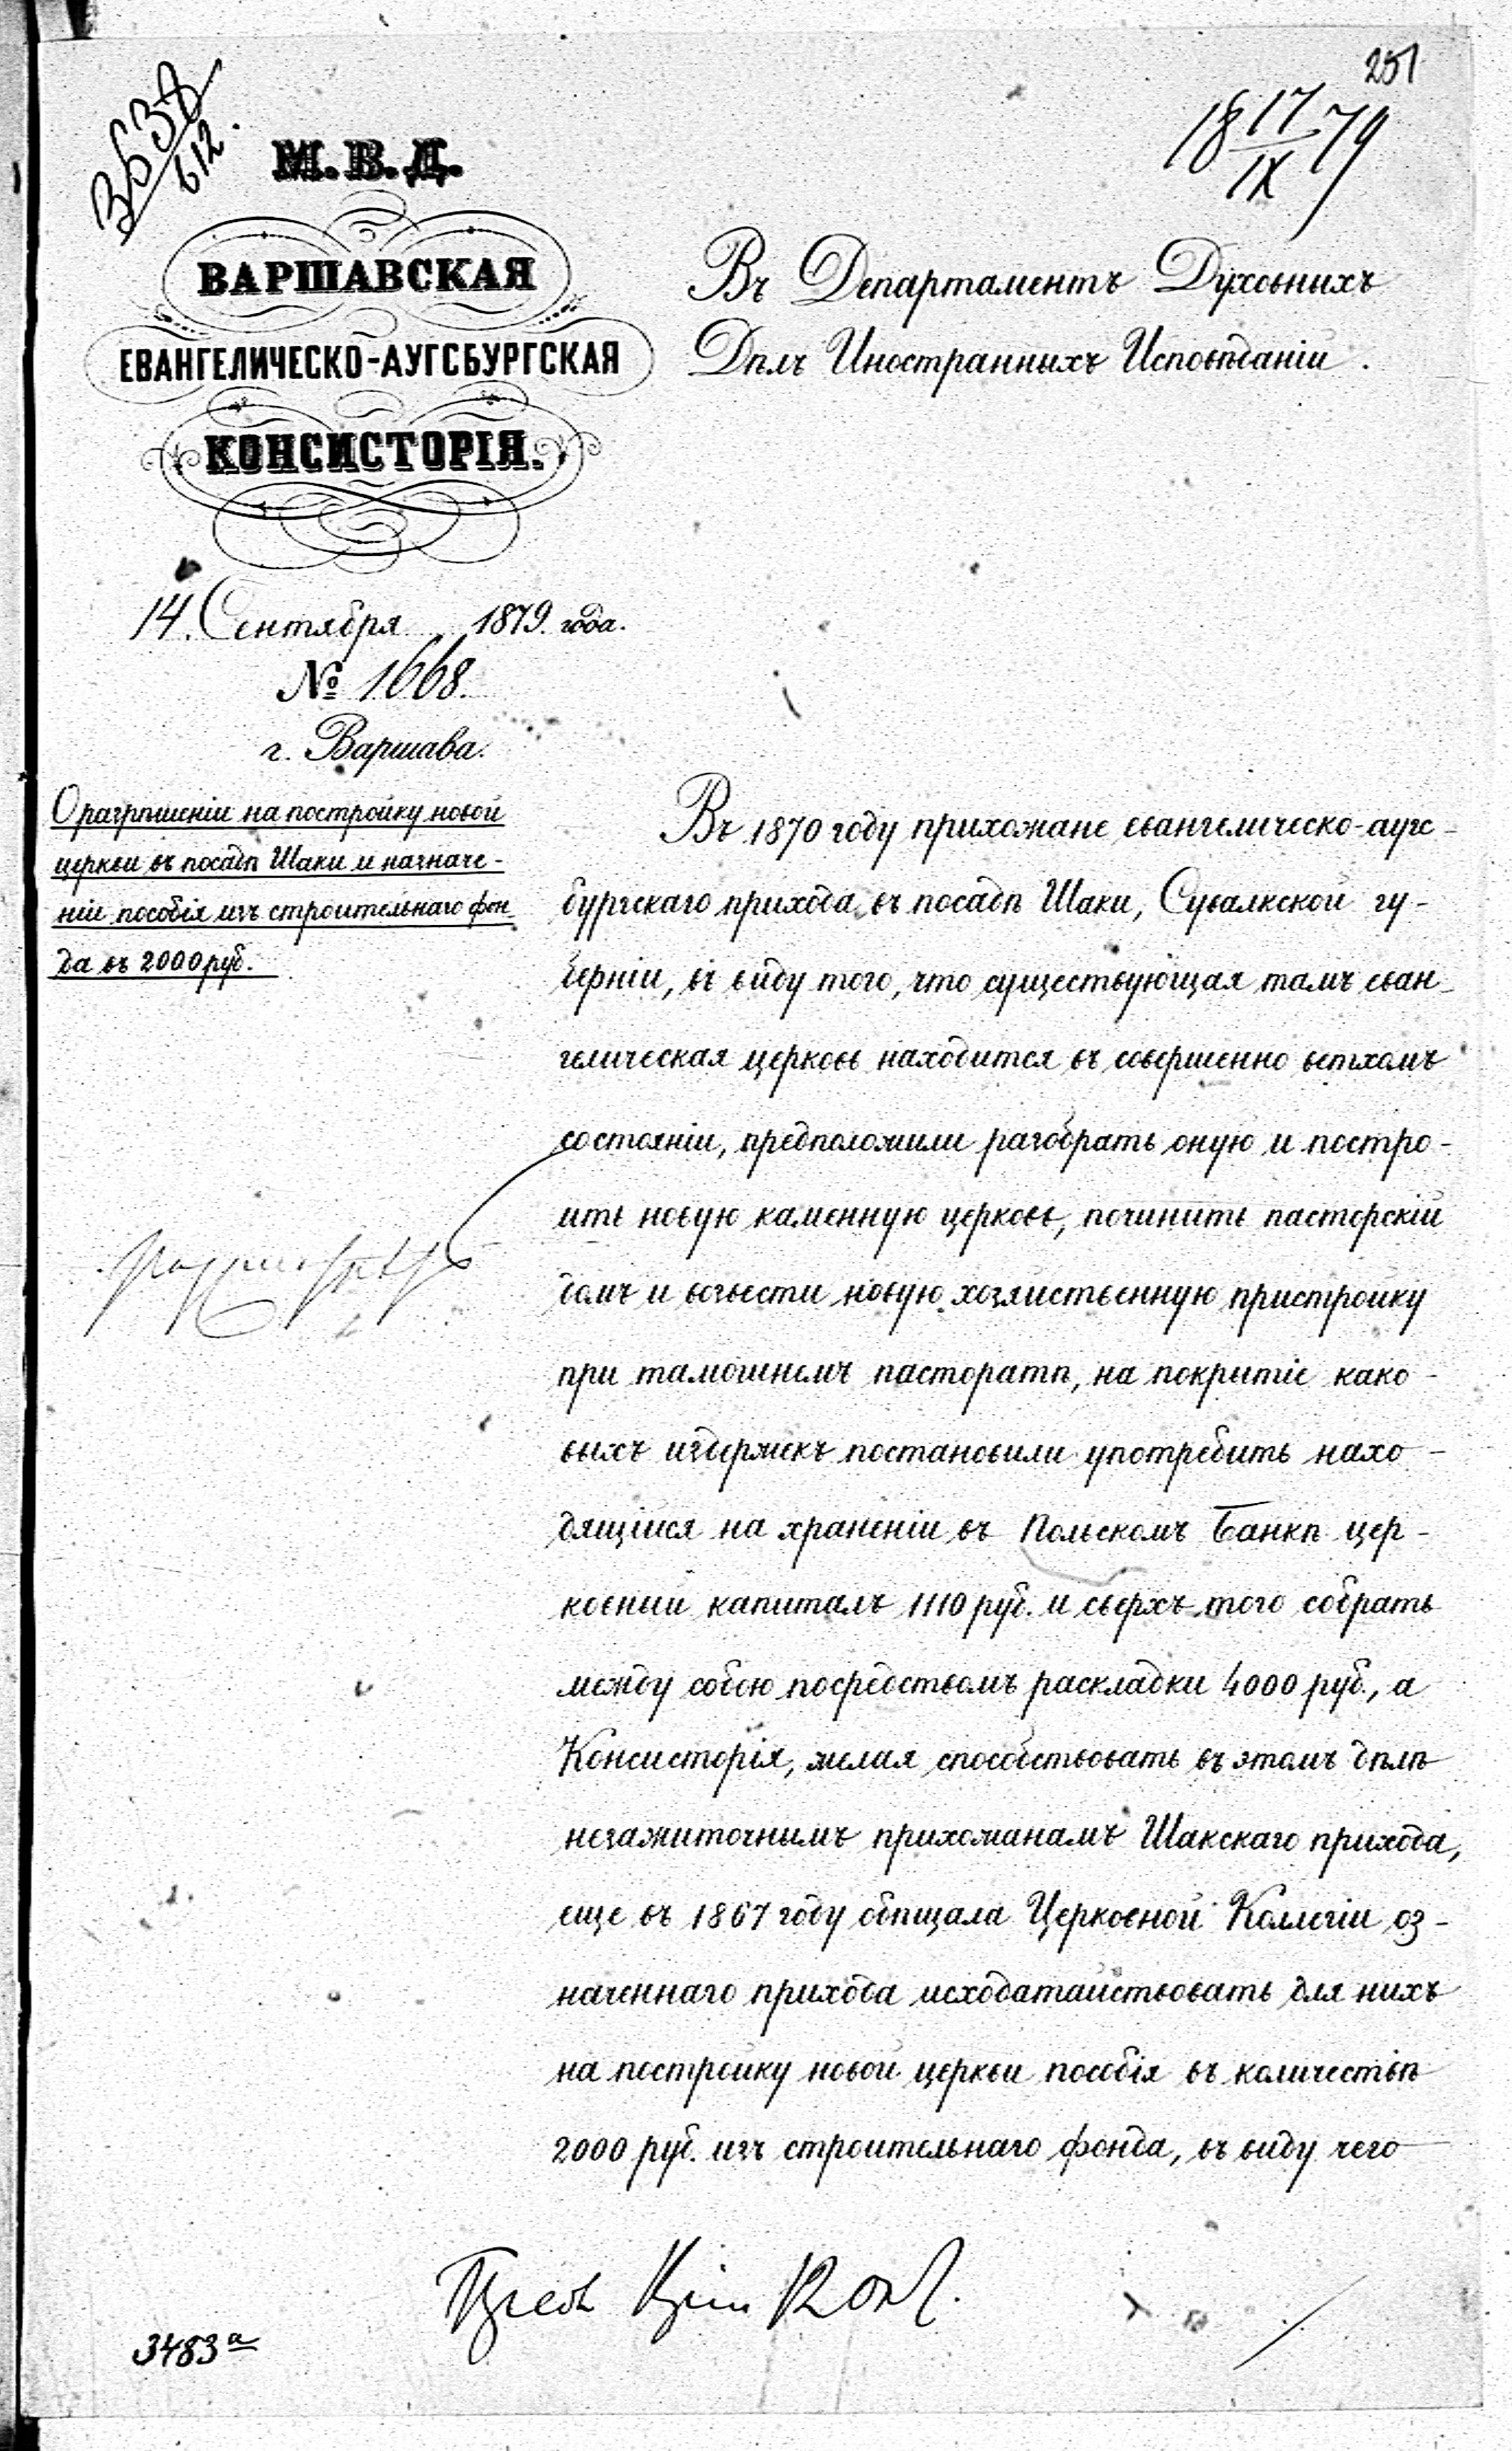 251
3638
612.
18 17/IX 79
М.В.Д.
ВАРШАВСКАЯ
ЕВАНГЕЛИЧЕСКО-АУГСБУРГСКАЯ
КОНСИСТОРІЯ.
14. Сентября 1879. года.
№ 1668.
г. Варшава.
О разрѣшеніи на постройку новой
церкви въ посадѣ Шаки и назначе-
ніи пособія изъ строительнаго фон-
да въ 2000 руб.
Въ Департаментъ Духовныхъ
Дѣлъ Иностранныхъ Исповѣданій.
Въ 1870 году прихожане евангелическо-аугс-
бургскаго прихода въ посадѣ Шаки, Сувалкской гу-
берніи, въ виду того, что существующая тамъ еван-
гелическая церковь находится въ совершенно ветхомъ
состояніи, предположили разобрать оную и постро-
ить новую каменную церковь, починить пасторскій
домъ и возвести новую хозяйственную пристройку
при тамошнемъ пасторатѣ, на покрытіе како-
выхъ издержекъ постановили употребить нахо-
дящійся на храненіи въ Польскомъ Банкѣ цер-
ковный капиталъ 1110 руб. и сверхъ того собрать
между собою посредствомъ раскладки 4000 руб., а
Консисторія, желая способствовать въ этомъ дѣлѣ
незажиточнымъ прихожанамъ Шакскаго прихода,
еще въ 1867 году обѣщала Церковной Коллегіи оз-
наченнаго прихода исходатайствовать для нихъ
на постройку новой церкви пособія въ количествѣ
2000 руб. изъ строительнаго фонда, въ виду чего
3483 а